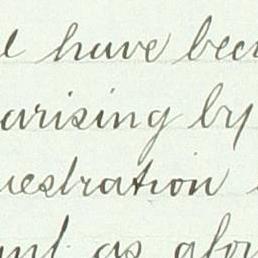 have been
arising by
uestration
as afo